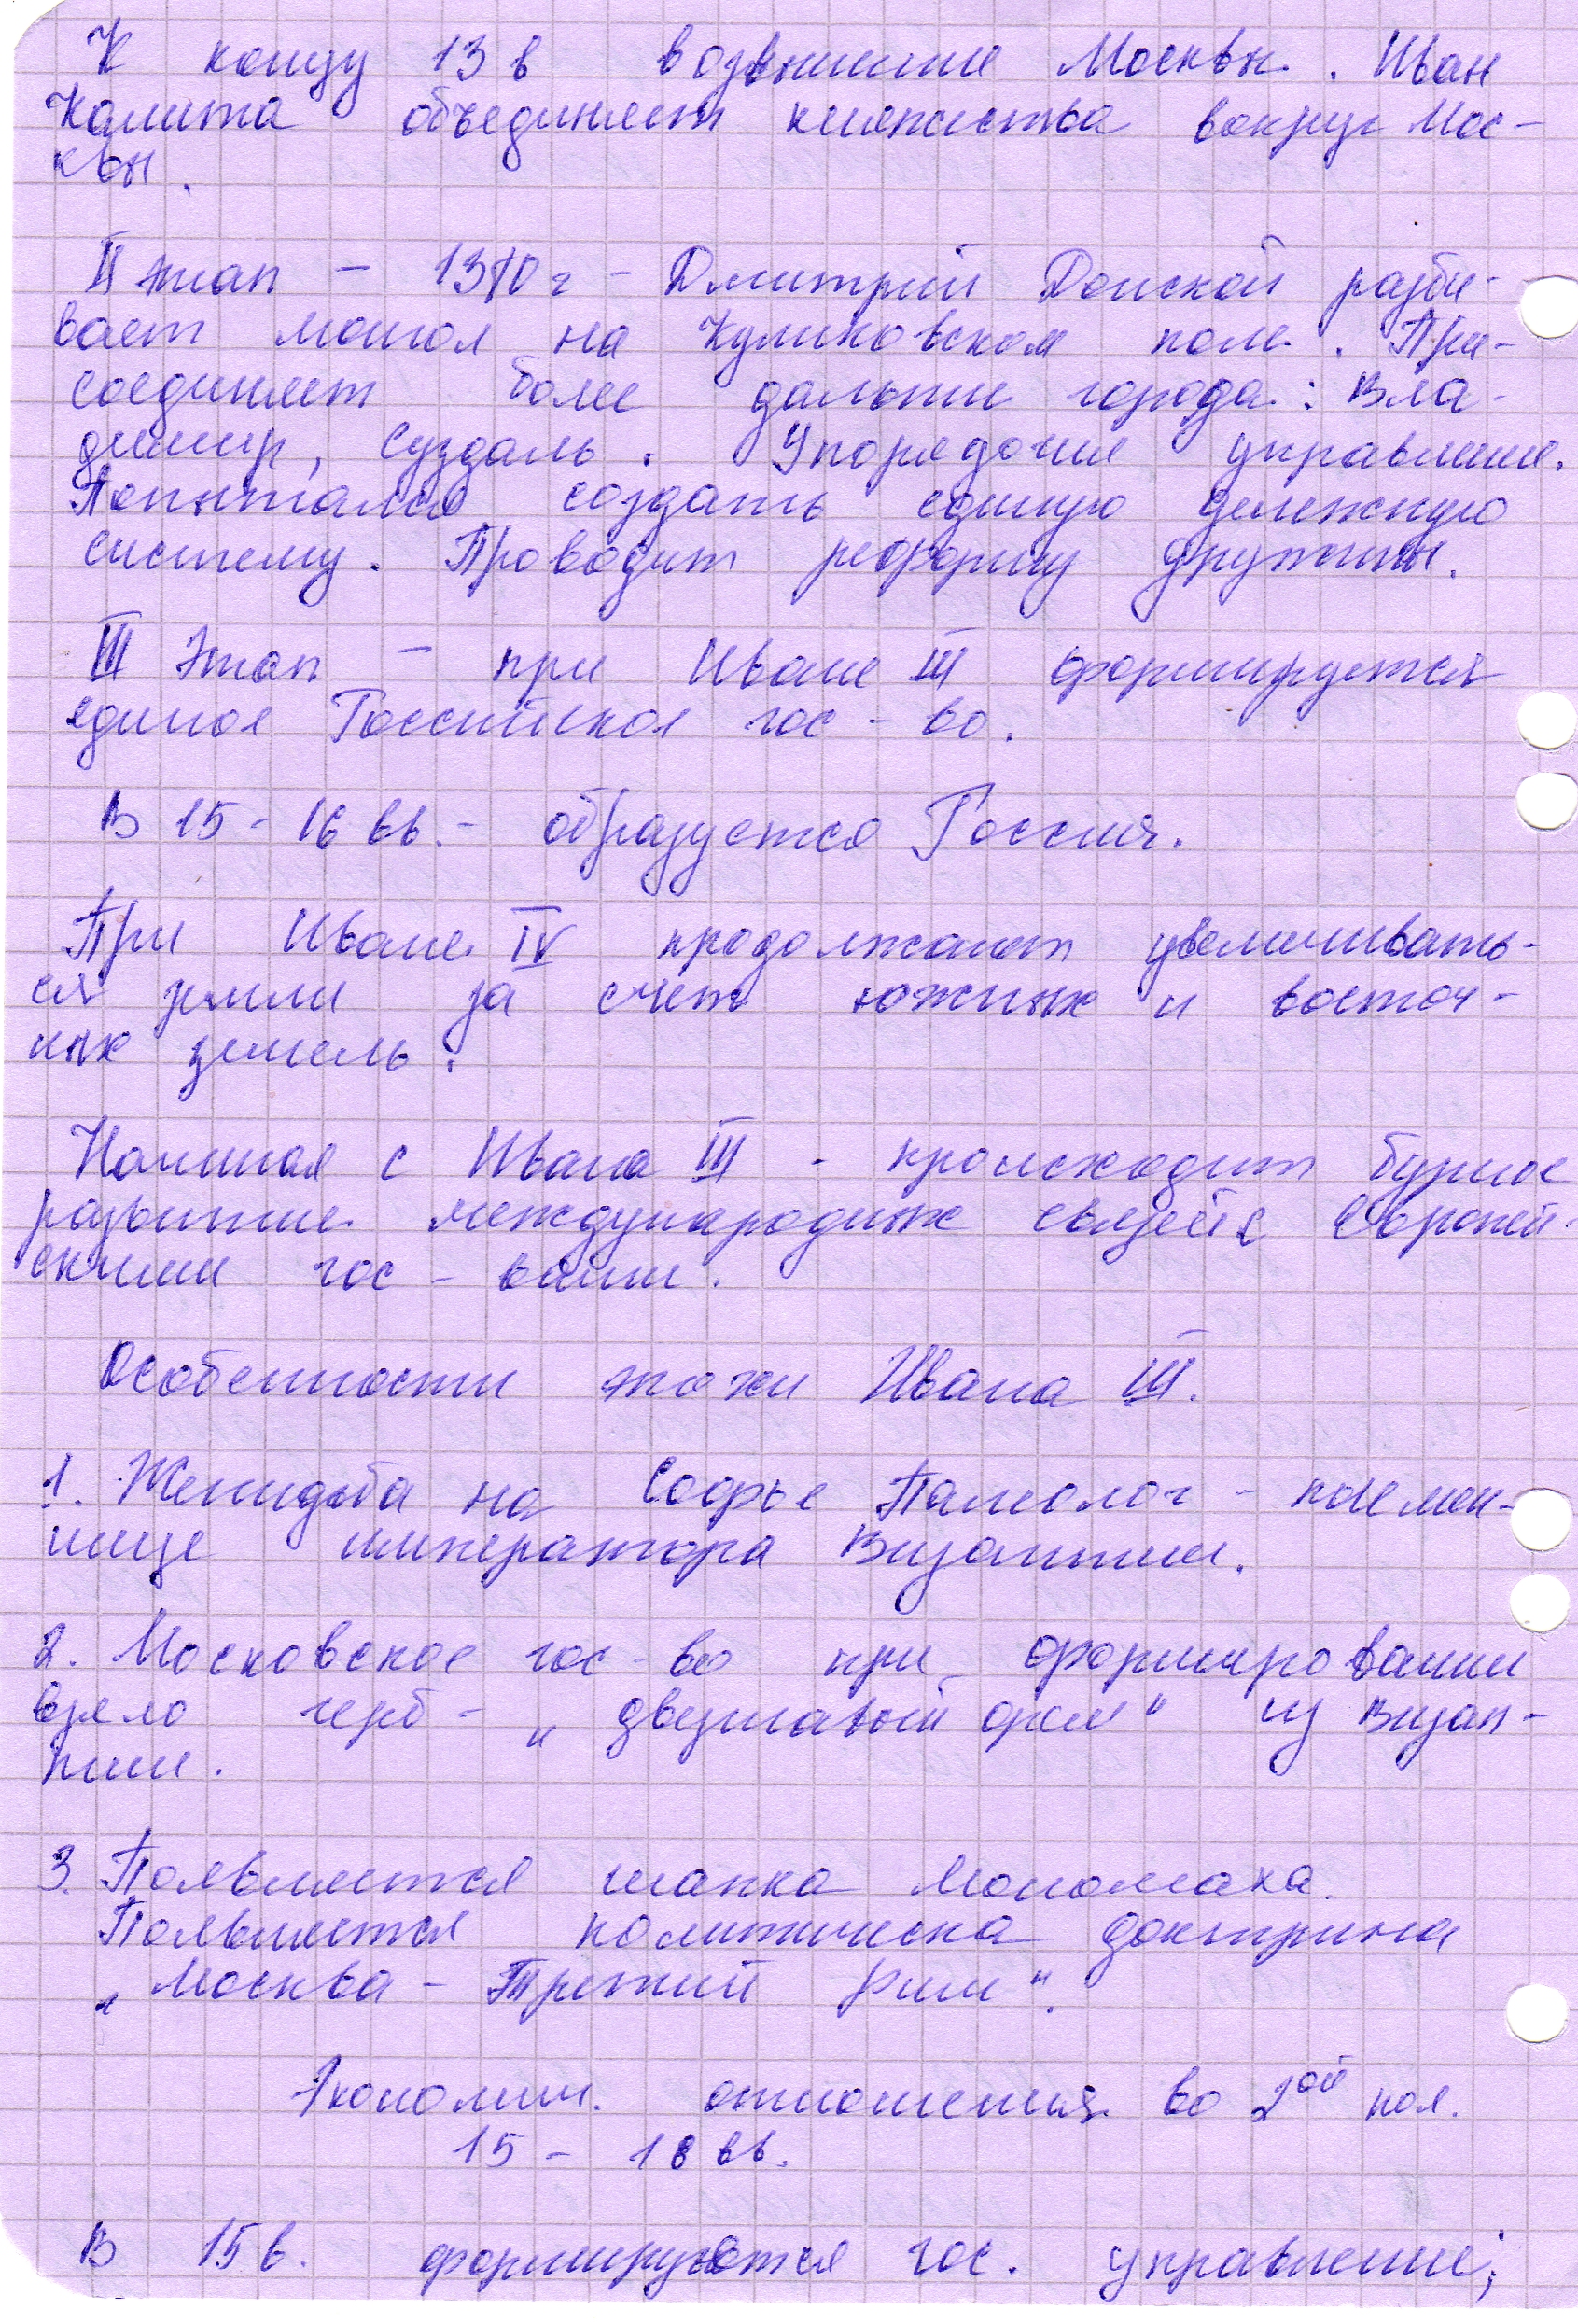 К концу 13 в возвышение Москвы. Иван
Калита объединяет княжества вокруг Мос-
квы.
II этап - 1380 г - Дмитрий Донской разби-
вает монгол на Куликовском поле. При-
соединяет более дальние города: Вла-
димир, Суздаль. Упорядочил управление.
Попытался создать единую денежную
систему. Проводит реформу дружины.
III Этап - при Иване III формируется
единое Российское гос-во.
В 15 - 16 вв. - образуется Россия.
При Иване IV продолжают увеличивать-
ся земли за счет южных и восточ-
ных земель.
Начиная с Ивана III - происходит бурное
развитие международных связей с Европей-
скими гос-вами.
Особенности эпохи Ивана III.
1. Женидьба на Софье Палеолог - племян-
нице императора Византии.
2. Московское гос-во при формировании
взяло герб - „двуглавый орел" из Визан-
тии.
3. Появляется шапка Мономаха.
Появляется политическа доктрина
„Москва - Третий Рим".
Экономич. отношения во 2ой пол.
15 - 18 вв.
В 15 в. формируются гос. управление;